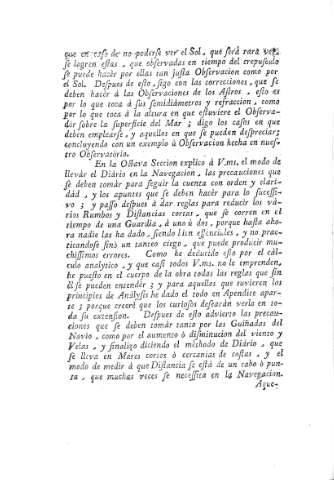 que en caso de no poderse ver el Sol, que será rara vez,
se logren estas, que observadas en tiempo del crepusculo
se puede hacér por ellas tan justa Observacion como por
el Sol. Despues de esto, sigo con las correcciones, que se
deben hacér à las Observaciones de los Astros, esto es
por lo que toca à sus semidiámetros y refraccion, como
por lo que toca á la altura en que estuviere el Observa-
dór sobre la superficie del Mar; digo los casos en que
deben emplearse, y aquellos en que se pueden despreciar;
concluyendo con un exemplo à Observacion hecha en nues-
tro Observatorio.
En la Octava Seccion explico à V.ms. el modo de
llevár el Diário en la Navegacion, las precauciones que
se deben tomár para seguir la cuenta con orden y clari-
dád, y los apuntes que se deben hacér para lo sucessi-
vo; y passo despues à dar reglas para reducir los vá-
rios Rumbos y Distancias cortas, que se corren en el
tiempo de una Guardia, à uno ù dos, porque hasta aho-
ra nadie las ha dado, siendo bien essenciales, y no prac-
ticandose sinó un tanteo ciego, que puede producir mu-
chissimos errores. Como he deducido esto por el cál-
culo analytico, y que casi todos V.ms. no le emprenden,
he puesto en el cuerpo de la obra todas las reglas que sin
él se pueden entender; y para aquellos que tuvieren los
principios de Análysis he dado el todo en Apendice apar-
te; porque creeré que los curiosos desearán verlo en to-
da su extension. Despues de esto advierto las precau-
ciones que se deben tomár tanto por las Guiñadas del
Navío, como por el aumento ò disminucion del viento y
Velas, y finalizo diciendo el méthodo de Diário, que
se lleva en Mares cortos ò cercanías de costas, y el
modo de medir à que Distancia se está de un cabo ò pun-
ta, que muchas veces se necessita en la Navegacion.
Aque-